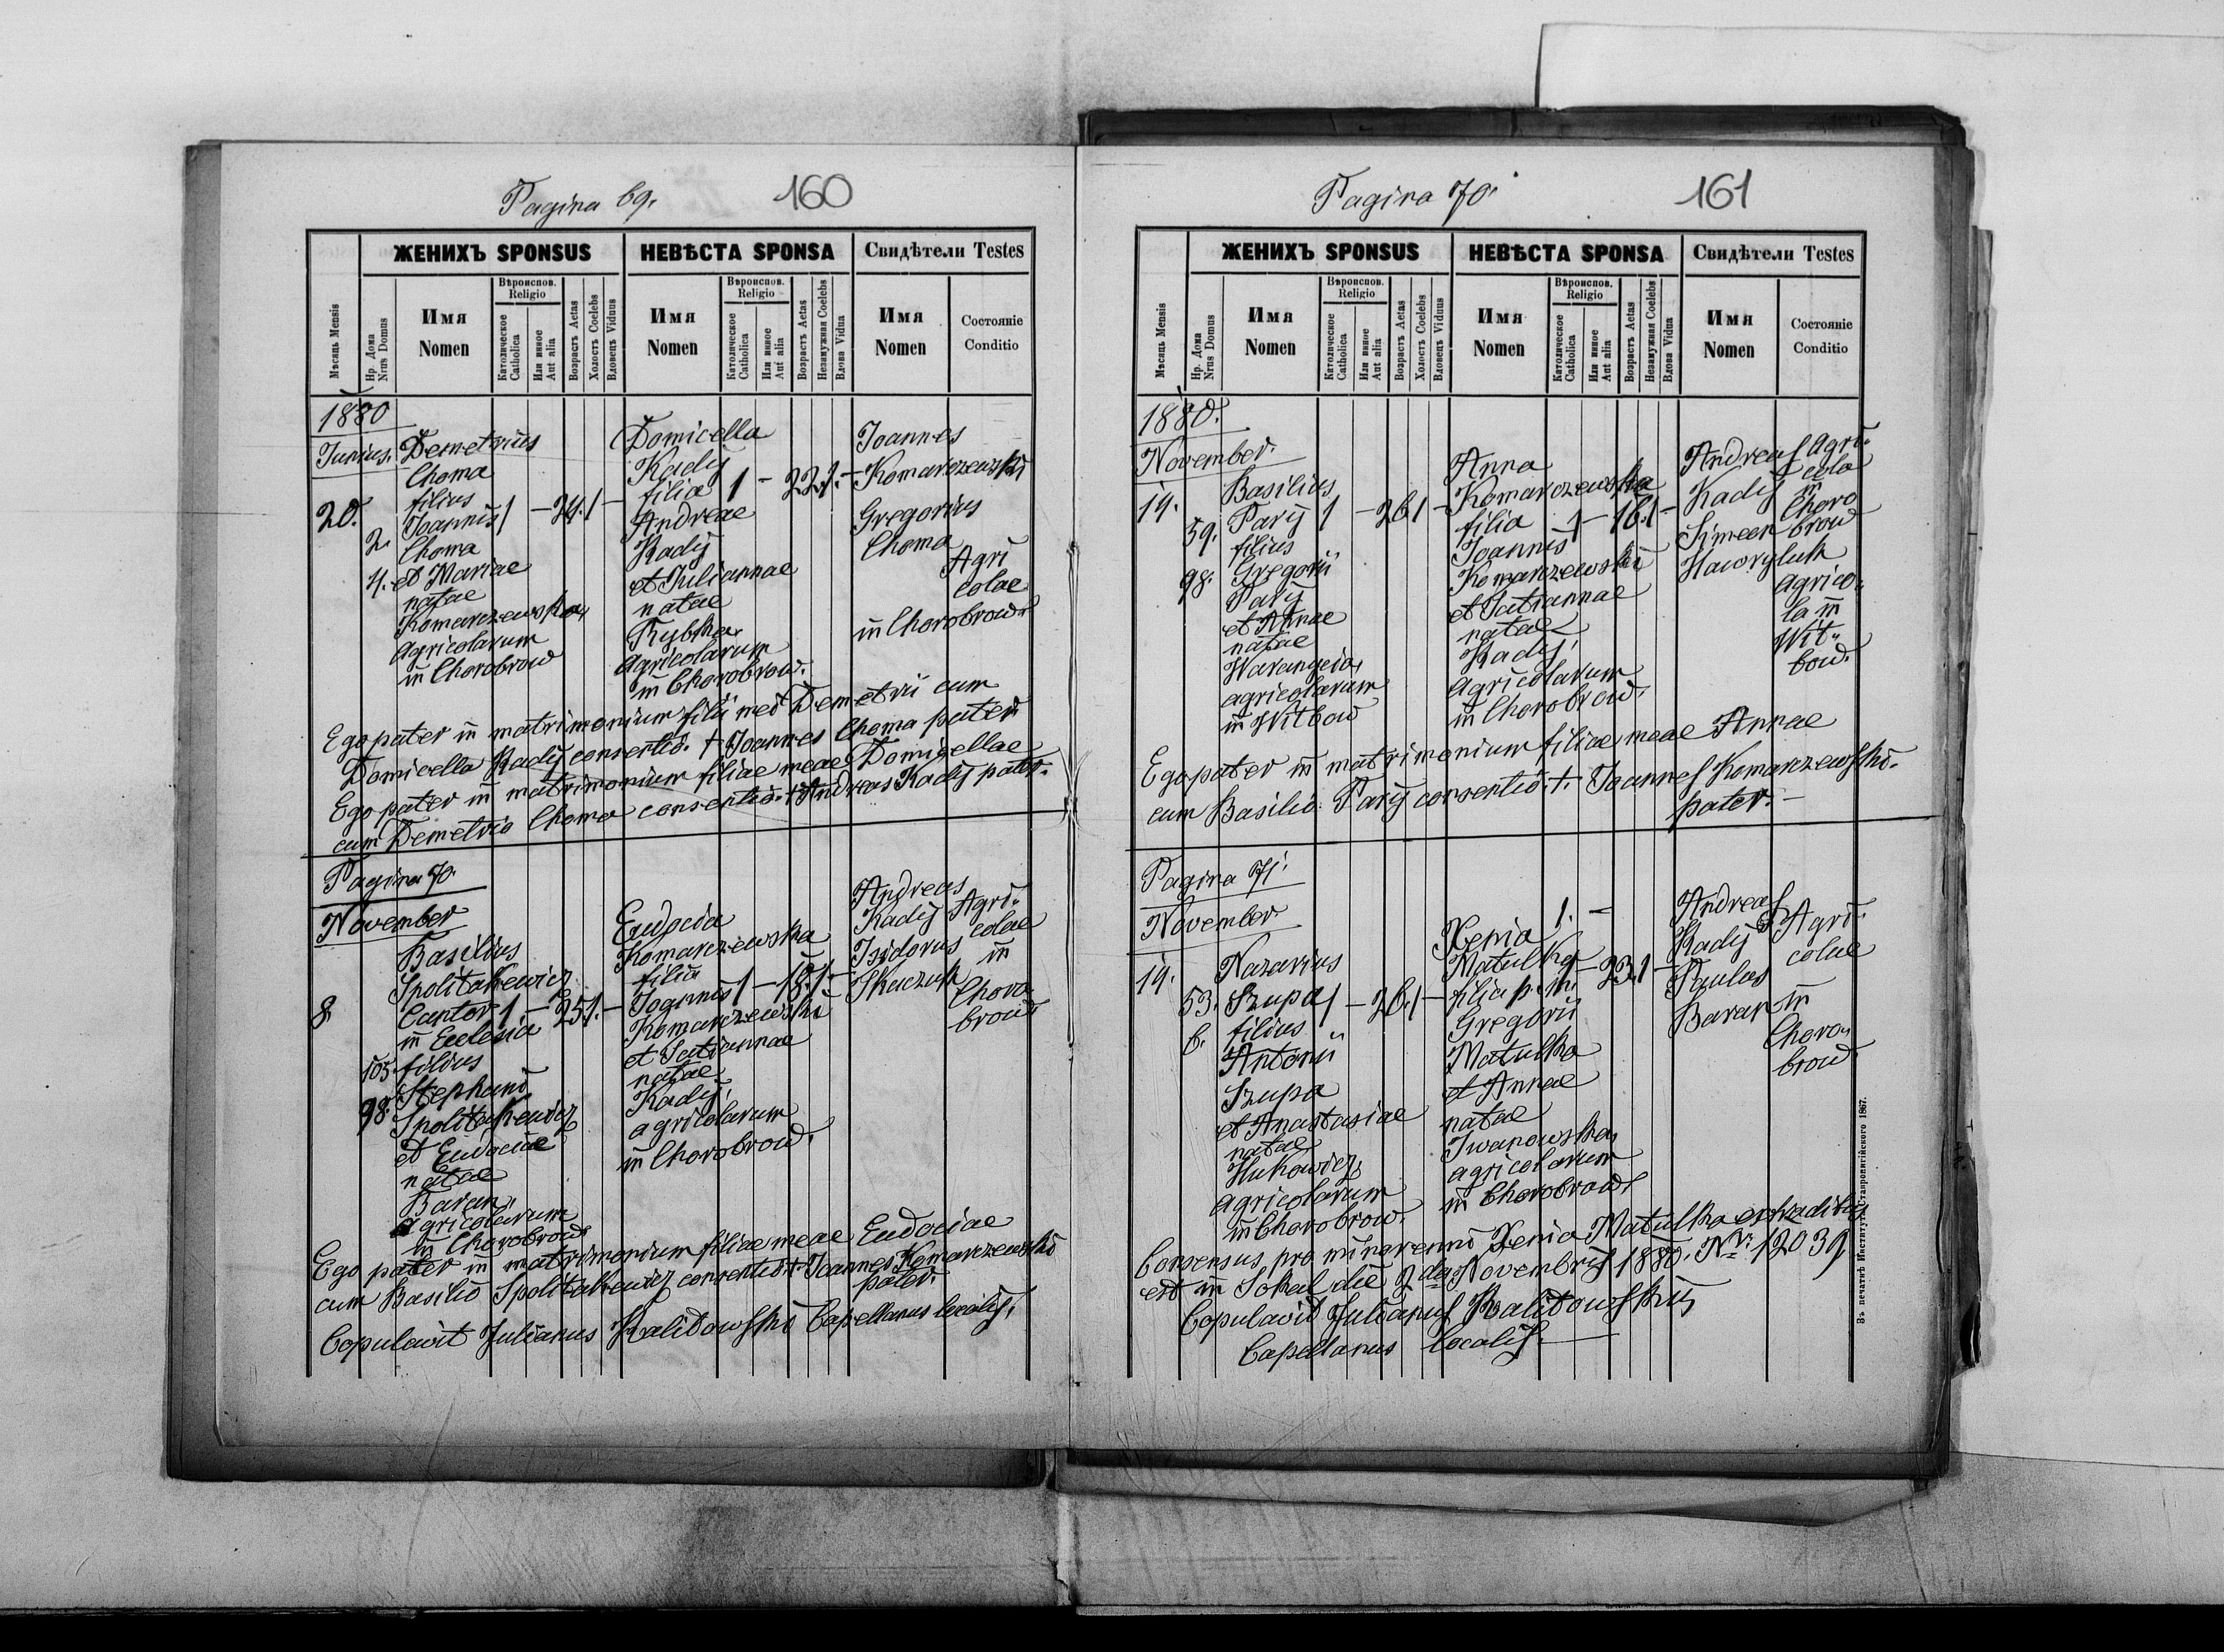 Pagina 69. 160
ЖЕНИХЪ SPONSUS НЕВѢСТА SPONSA Свидѣтели Testes
Мѣсяць Mensis
Нр. Дома Nrus Domus
Имя Nomen
Вѣроиспов. Religio
Католическое Catholica
Или иное Aut alia
Возрастъ Aetas
Холостъ Coelebs
Вдовецъ Viduus
Имя Nomen
Вѣроиспов. Religio
Католическое Catholica
Или иное Aut alia
Возрастъ Aetas
Незамужная Coelebs
Вдова Vidua
Имя Nomen
Состояніе Conditio
1880
Junius.
20.
2.
4.
Demetrius
Choma
filius
Joannis 1 – 24. 1 –
Choma
et Mariae
natae
Komarczewska,
agricolarum
in Chorobrow
Domicella
Kadij
filia 1 – 22 1. –
Andreae
Kadij
et Juliannae
natae
Rybka,
agricolarum
in Chorobrow.
Joannes
Komarczewski
Gregorius
Choma
Agri
colae
in Chorobrow.
Ego pater in matrimonium filii mei Demetrii cum
Domicella Kadij consentio. + Joannes Choma pater
Ego pater in matrimonium filiae meae Domicellae
cum Demetrio Choma consentio. + Andreas Kadij pater.
Pagina 70.
November
8
105.
98.
Basilius
Spolitakewicz
Cantor 1. – 25 1. –
in Ecclesia
filius
Stephani
Spolitakewicz
et Eudociae
natae
Baran,
agricolarum
in Chorobrow
Eudocia
Komarczewska
filia
Joannis 1 – 18. 1. –
Komarczewski
et Tatiannae
natae
Kadij,
agricolarum
in Chorobrow.
Andreas
Kadij
Isidorus
Tkaczuk
Agri-
colae
in
Choro-
brow.
Ego pater in matrimonium filiae meae Eudociae
cum Basilio Spolitakewicz consentio. + Joannes Komarczewski
pater.
Copulavit Julianus Kalitowski Capellanus localis.
Pagina 70. 161
ЖЕНИХЪ SPONSUS НЕВѢСТА SPONSA Свидѣтели Testes
Мѣсяць Mensis
Нр. Дома Nrus Domus
Имя Nomen
Вѣроиспов. Religio
Католическое Catholica
Или иное Aut alia
Возрастъ Aetas
Холостъ Coelebs
Вдовецъ Viduus
Имя Nomen
Вѣроиспов. Religio
Католическое Catholica
Или иное Aut alia
Возрастъ Aetas
Незамужная Coelebs
Вдова Vidua
Имя Nomen
Состояніе Conditio
1880.
November.
14.
59.
98.
Basilius
Parij 1 – 26 1 –
filius
Gregorii
Parij
et Annae
natae
agricolarum
in Witkow
Anna
Komarczewska
filia 1 – 16. 1 –
Joannis
Komarczewski
et Tatiannae
natae
Kadij,
agricolarum
in Chorobrow.
Andreas
Kadij
Simeon
Hawryluk
Agri-
cola
in
Choro
brow
agrico-
la in
Wit-
kow.
Ego pater in matrimonium filiae meae Annae
cum Basilio Parij consentio. +. Joannes Komarczewski.
pater. –
Pagina 71.
November.
14.
53.
6.
Nazarius
Szupa 1 – 26. 1 –
filius
Antonii
Szupa
et Anastasiae
natae
agricolarum
in Chorobrow.
Xenia 1. –
Matulka
filia p. m. – 23. 1 –
Gregorii
Matulka
et Annae
natae
Iwanowska,
agricolarum
in Chorobrow
Andreas
Kadij
Paulus
Baran
Agri-
colae
in
Choro-
brow
Consensus pro minorenni Xenia Matulka
est in Sokal die 9 da Novembris 1880. Nr. 12039
Copulavit Julianus Kalitowskij
Capellanus localis.
Въ печатнѣ Института Ставропигійского 1867.